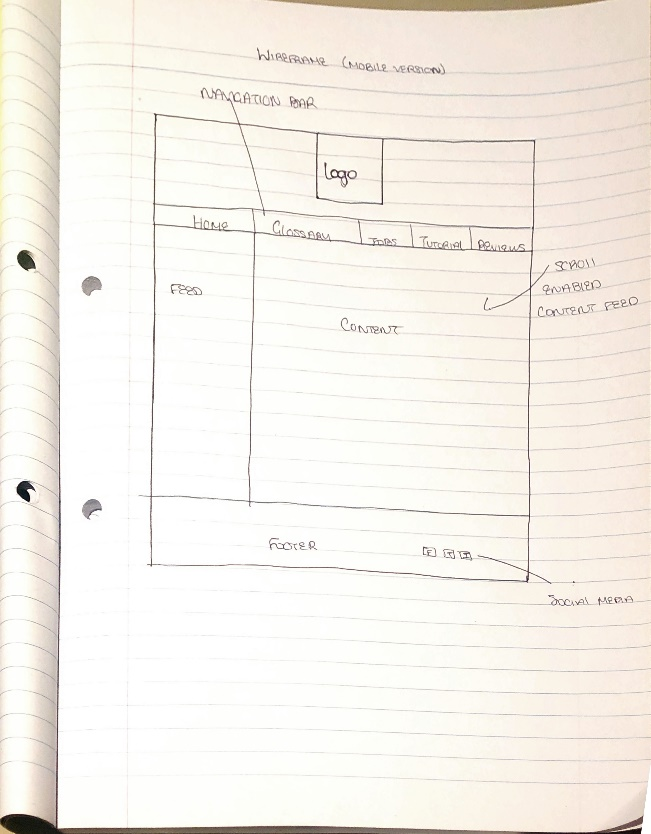 WIREFRAME (MOBILE VERSION)
NAVIGATION BAR
Logo
HOME GLOSSARY JOBS TUTORIAL REVIEWS
SCROLL
FEED
ENABLED
CONTENT FEED
CONTENT
FOOTER
SOCIAL MEDIA